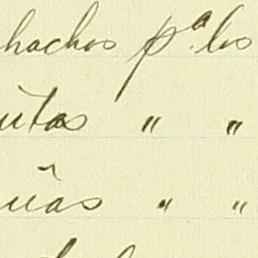 hachos pª los
utas " "
uñas " "